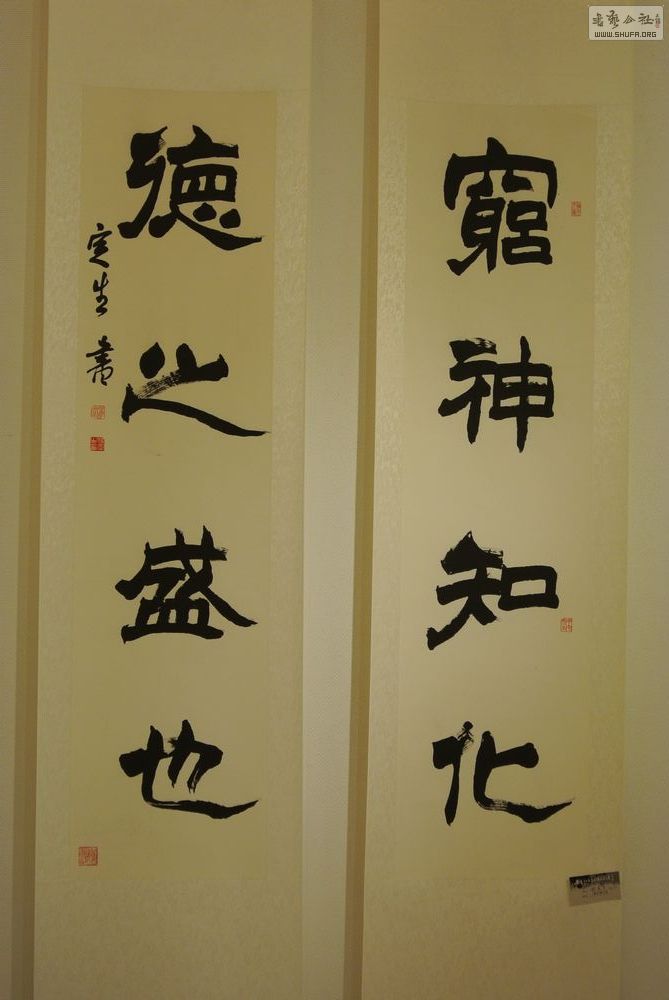 窮神知化
德之盛也
定生書
書藝公社
WWW.SHUFA.ORG